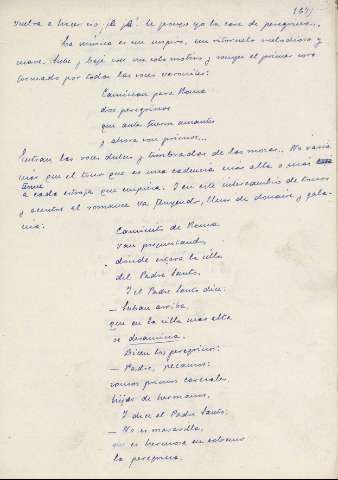 167)
vuelva a hacer eso de que se ponga ya la cara de peregrino...
La música es un suspiro, un ritornelo melodioso y
suave. Sube y baja con un solo motivo y rompe el primer coro
formado por todas las voces varoniles:
Caminan para Roma
dos peregrinos
que antes fueron amantes
y ahora son primos...
Entran las voces dulces y timbradas de las mozas. No varía
más que el tono que es una cadencia más alta o más
a cada estrofa que empieza. Y en este intercambio de tonos
y acentos el romance va fluyendo, lleno de donaire y gala-
nía:
Caminito de Roma
van preguntando,
dónde estará la silla
del Padre Santo.
Y el Padre Santo dice:
— Suban arriba,
que en la silla más alta
se
Dicen los peregrinos:
— Padre, pecamos:
somos primos carnales,
hijos de hermanos.
Y dice el Padre Santo:
— No es maravilla,
que es hermosa en extremo
la peregrina.